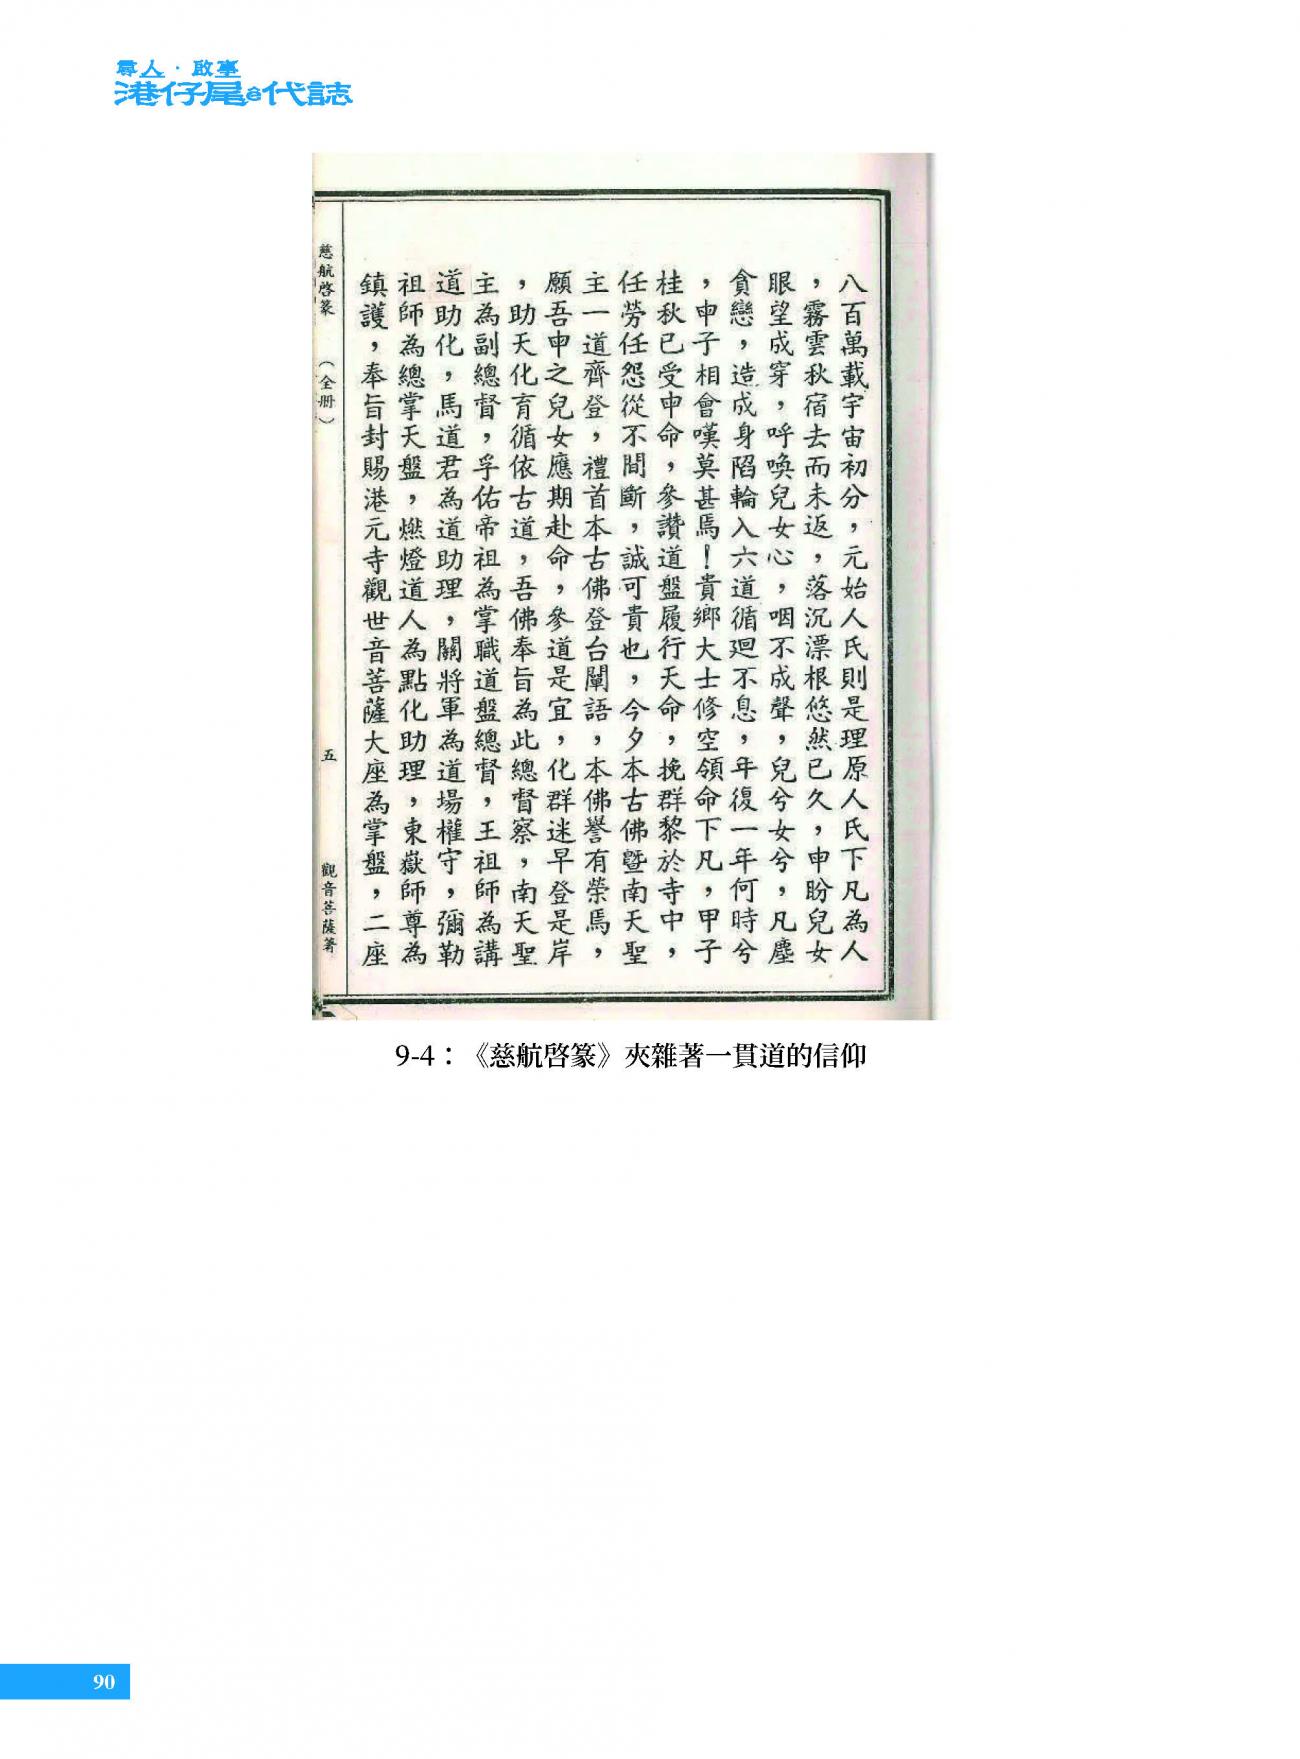 尋人・啟事
港仔尾ê代誌
八百萬載宇宙初分，元始人氏則是理原人氏下凡為人
，霧雲秋宿去而未返，落沉漂根悠然已久，申盼兒女
眼望成穿，呼喚兒女心，咽不成聲，兒兮女兮，凡塵
貪戀，造成身陷輪入六道循迴不息，年復一年何時兮
，申子相會嘆莫甚焉！貴鄉大士修空領命下凡，甲子
桂秋已受申命，參讚道盤履行天命，挽群黎於寺中，
任勞任怨從不間斷，誠可貴也，今夕本古佛暨南天聖
主一道齊登，禮首本古佛登台闡語，本佛譽有榮焉，
願吾申之兒女應期赴命，參道是宜，化群迷早登是岸
，助天化育循依古道，吾佛奉旨為此總督察，南天聖
主為副總督，孚佑帝祖為掌職道盤總督，王祖師為講
道助化，馬道君為道助理，關將軍為道場權守，彌勒
祖師為總掌天盤，燃燈道人為點化助理，東嶽師尊為
鎮護，奉旨封賜港元寺觀世音菩薩大座為掌盤，二座
慈航啓篆　（全册）　五　觀音菩薩著
9-4：《慈航啓篆》夾雜著一貫道的信仰
90